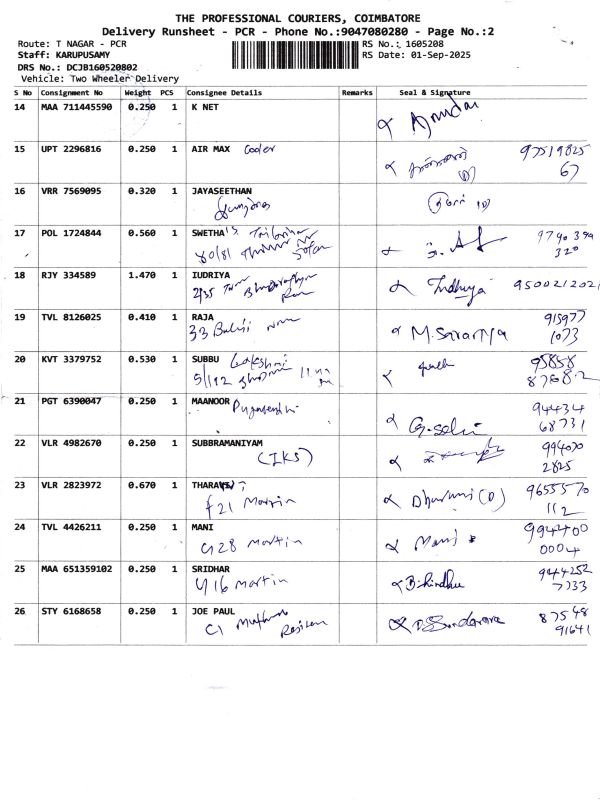 THE PROFESSIONAL COURIERS, COIMBATORE
Delivery Runsheet - PCR - Phone No.:9047080280 - Page No.:2
Route: T NAGAR - PCR RS No.: 1605208
Staff: KARUPUSAMY RS Date: 01-Sep-2025
DRS No.: DCJB160520802
Vehicle: Two Wheeler Delivery
S No Consignment No Weight PCS Consignee Details Remarks Seal & Signature
14 MAA 711445590 0.250 1 K NET
15 UPT 2296816 0.250 1 AIR MAX Cooler 97519825
67
16 VRR 7569095 0.320 1 JAYASEETHAN
17 POL 1724844 0.560 1 SWETHA'S
18 RJY 334589 1.470 1 IUDRIYA Indhuya 9500212021
2/35
19 TVL 8126025 0.410 1 RAJA 915977
33 M. Saranya 1073
20 KVT 3379752 0.530 1 SUBBU Lakshmi 95858
5/192
21 PGT 6390047 0.250 1 MAANOOR 94434
G. Selvi 68731
22 VLR 4982670 0.250 1 SUBBRAMANIYAM 994070
(IKS) 2825
23 VLR 2823972 0.670 1 9655570
F21 Martin Dharani (D) 112
24 TVL 4426211 0.250 1 MANI 994400
G28 Martin Mani 0004
25 MAA 651359102 0.250 1 SRIDHAR 944252
416 Martin B. hindhu 7733
26 STY 6168658 0.250 1 JOE PAUL 87548
C1 91641